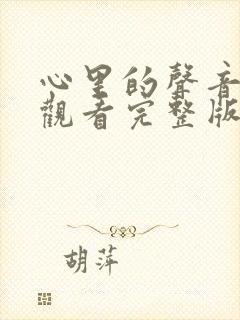 心里的聲音
觀看完整版
胡萍